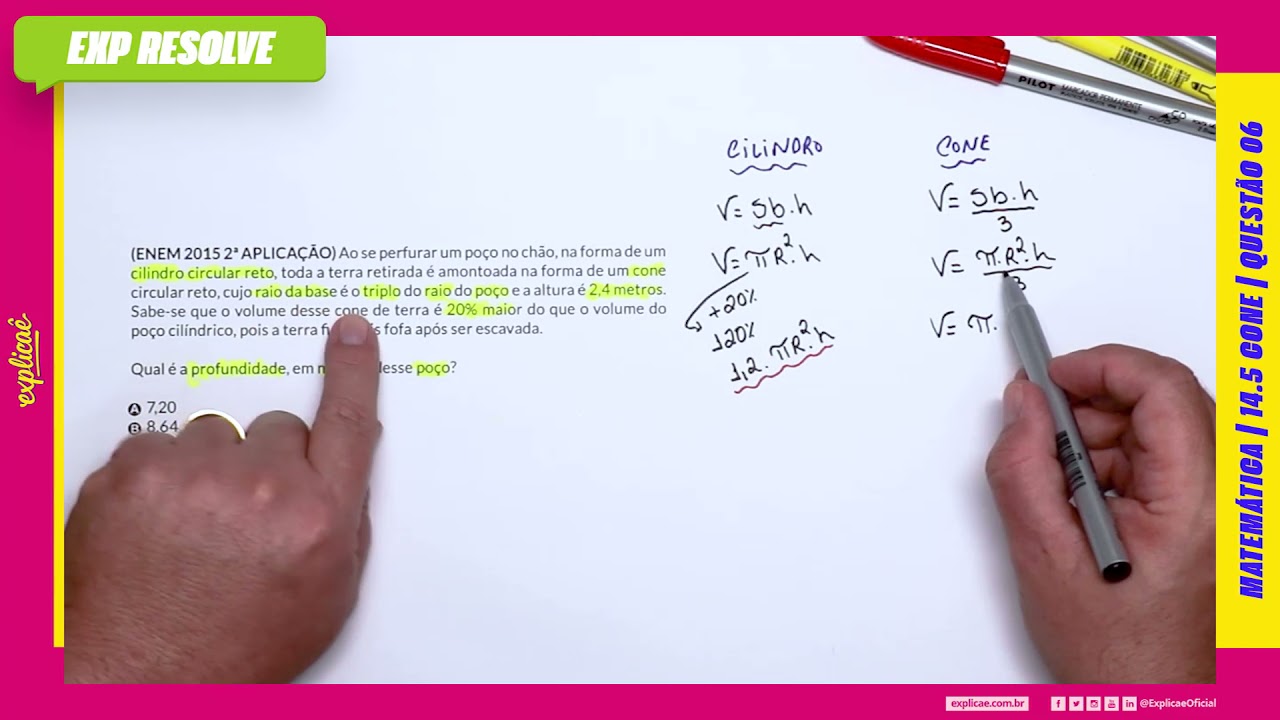 EXP RESOLVE
PILOT
MARCADOR PERMANENTE
(ENEM 2015 2ª APLICAÇÃO) Ao se perfurar um poço no chão, na forma de um
cilindro circular reto, toda a terra retirada é amontoada na forma de um cone
circular reto, cujo raio da base é o triplo do raio do poço e a altura é 2,4 metros.
Sabe-se que o volume desse cone de terra é 20% maior do que o volume do
poço cilíndrico, pois a terra fofa após ser escavada.
Qual é a profundidade, em desse poço?
A 7,20
B 8,64
CILINDRO
V= Sb.h
V= πR².h
+20%
120%
1,2.πR².h
CONE
V= Sb.h
3
V= π.R².h
3
V= π.
explicaê
MATEMÁTICA | 14.5 CONE | QUESTÃO 06
explicae.com.br
@ExplicaeOficial